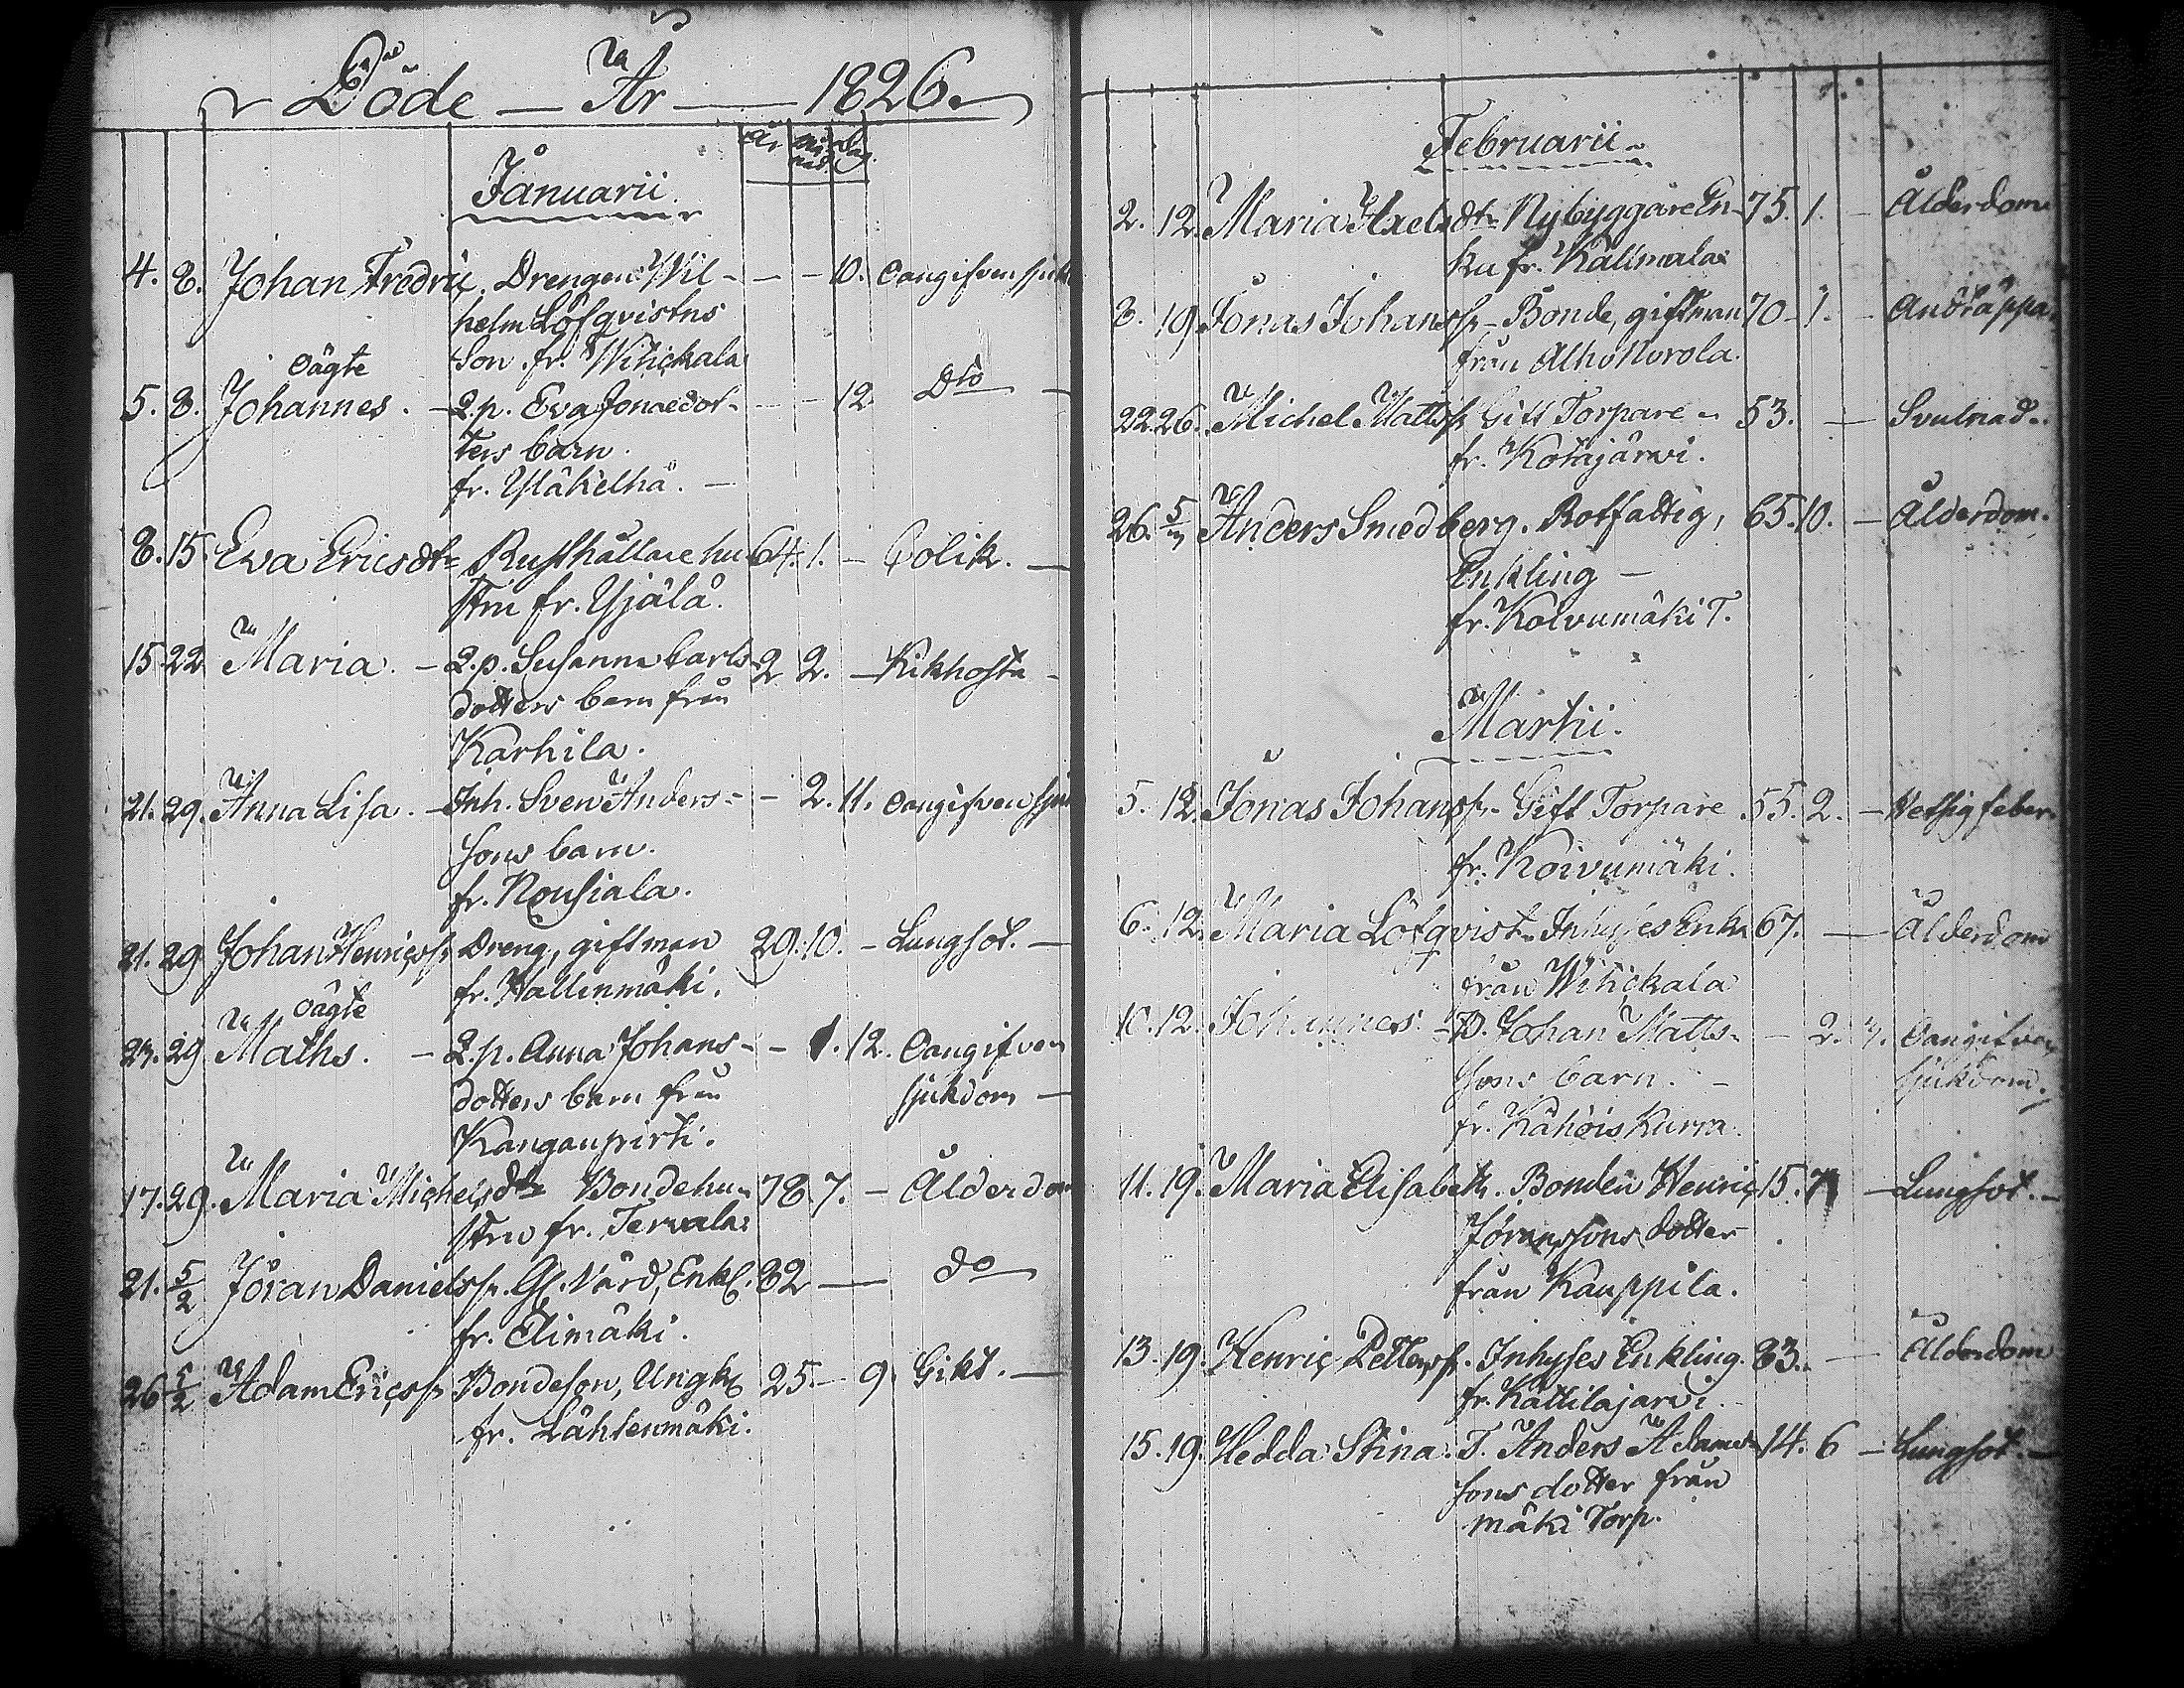 Döde — År — 1826.
år månd. dag.
Januarii.
4. 8. Johan Fredric. Drengen Wil- — — 10. Oangifven sjukd
helm Löfqvistns
Son fr. Wihickala
oägte
5. 8. Johannes. — Q.p. Eva Jonaedot- — — 12 Dto —
ters barn.
fr. Ylikelhä. —
8. 15. Eva Ericsdtr Rusthållare hu- 64. 1. — Colik. —
stru fr. Yjälä.
15. 22 Maria. — Q.p. Susanna Carls- 2 2. — Kikhosta —
dotters barn från
Karhila.
21. 29. Anna Lisa. — Inh. Sven Anders- — 2. 11. Oangifven sjuk
sons barn.
fr. Nousiala.
21. 29 Johan Henricss. Dreng, gift man 29. 10. — Lungsot. —
fr. Hallinmäki.
oägte
23. 29 Maths. — Q.p. Anna Johans- — 1. 12. Oangifven
dotters barn från sjukdom —
Kanganpirti.
17. 29. Maria Michelsdtr Bondehu- 78 7. — Ålderdom
stru fr. Tervala
21. 5/2 Jöran Danielss. Gl. Värd, Enkl. 82 — do
fr. Elimäki.
26 5/2 Adam Ericss. Bondeson, Ungk. 25. — 9. Gikt. —
fr. Lähtenmäki.
Februarii
2. 12. Maria Axelsdtr Nybyggare En- 75. 1. — Ålderdom
ka fr. Kallmala
8. 19. Jonas Johanss. — Bonde, gift man 70 — 1. — Andtäppa
från Alho Norola.
22. 26. Michel Mattss. Gift Torpare 53. — Svulnad.
fr. Kotajärwi.
26. 5/3 Anders Smedberg. Rotfattig, 65. 10. — Ålderdom.
Enkling —
fr. Koivumäki T.
Martii.
5. 12. Jonas Johanss. Gift Torpare 55. 2. — Hetsig feber.
fr. Koivumäki.
6. 12. Maria Löfqvist. Inhyses Enka 67. — Ålderdom
från Wihickala
10. 12. Johannes. — B. Johan Matts- — 2. 3. Oangifven
sons barn. — sjukdom.
fr. Kähöis Kurra.
11. 19. Maria Elisabeth. Bonden Henric 15. 7 — Lungsot. —
Jöranssons dotter
från Kauppila.
13. 19. Henric Petterss. Inhyses Enkling. 83. — Ålderdom
fr. Kattilajarvi.
15. 19. Hedda Stina. T. Anders Adams- 14. 6 — Lungsot. —
sons dotter från
mäki Torp.